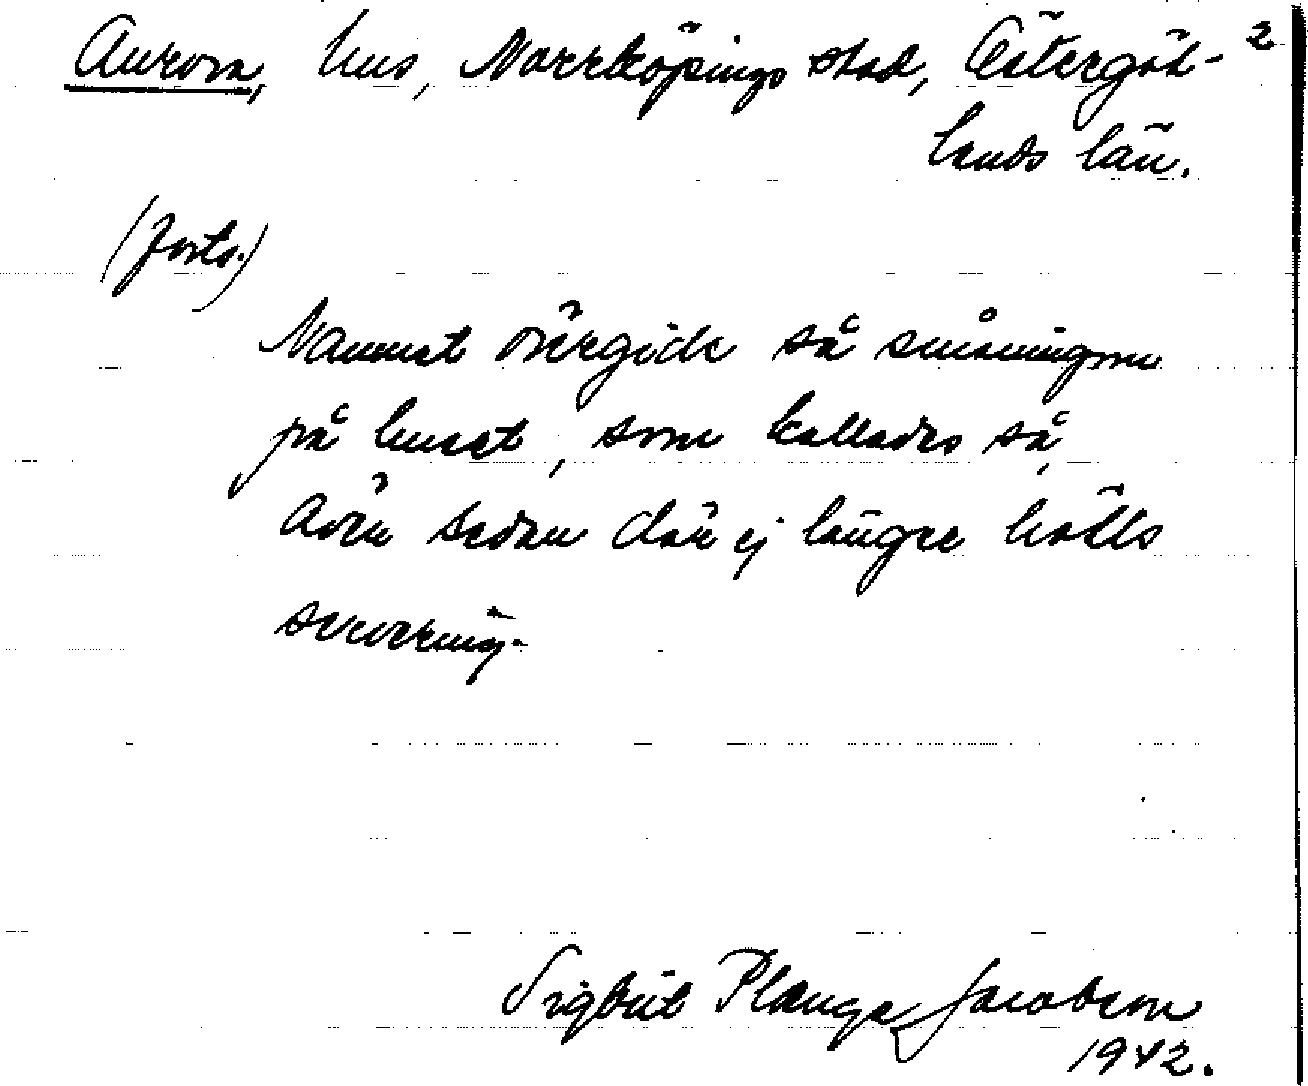 Aurora, hus, Norrköpings stad, Östergöt- 2
lands län.
(forts.)
Namnet övergick så småningom
på huset, som kallades så,
även sedan där ej längre hölls
servering.
Sigbrit Plænge Jacobson
1942.